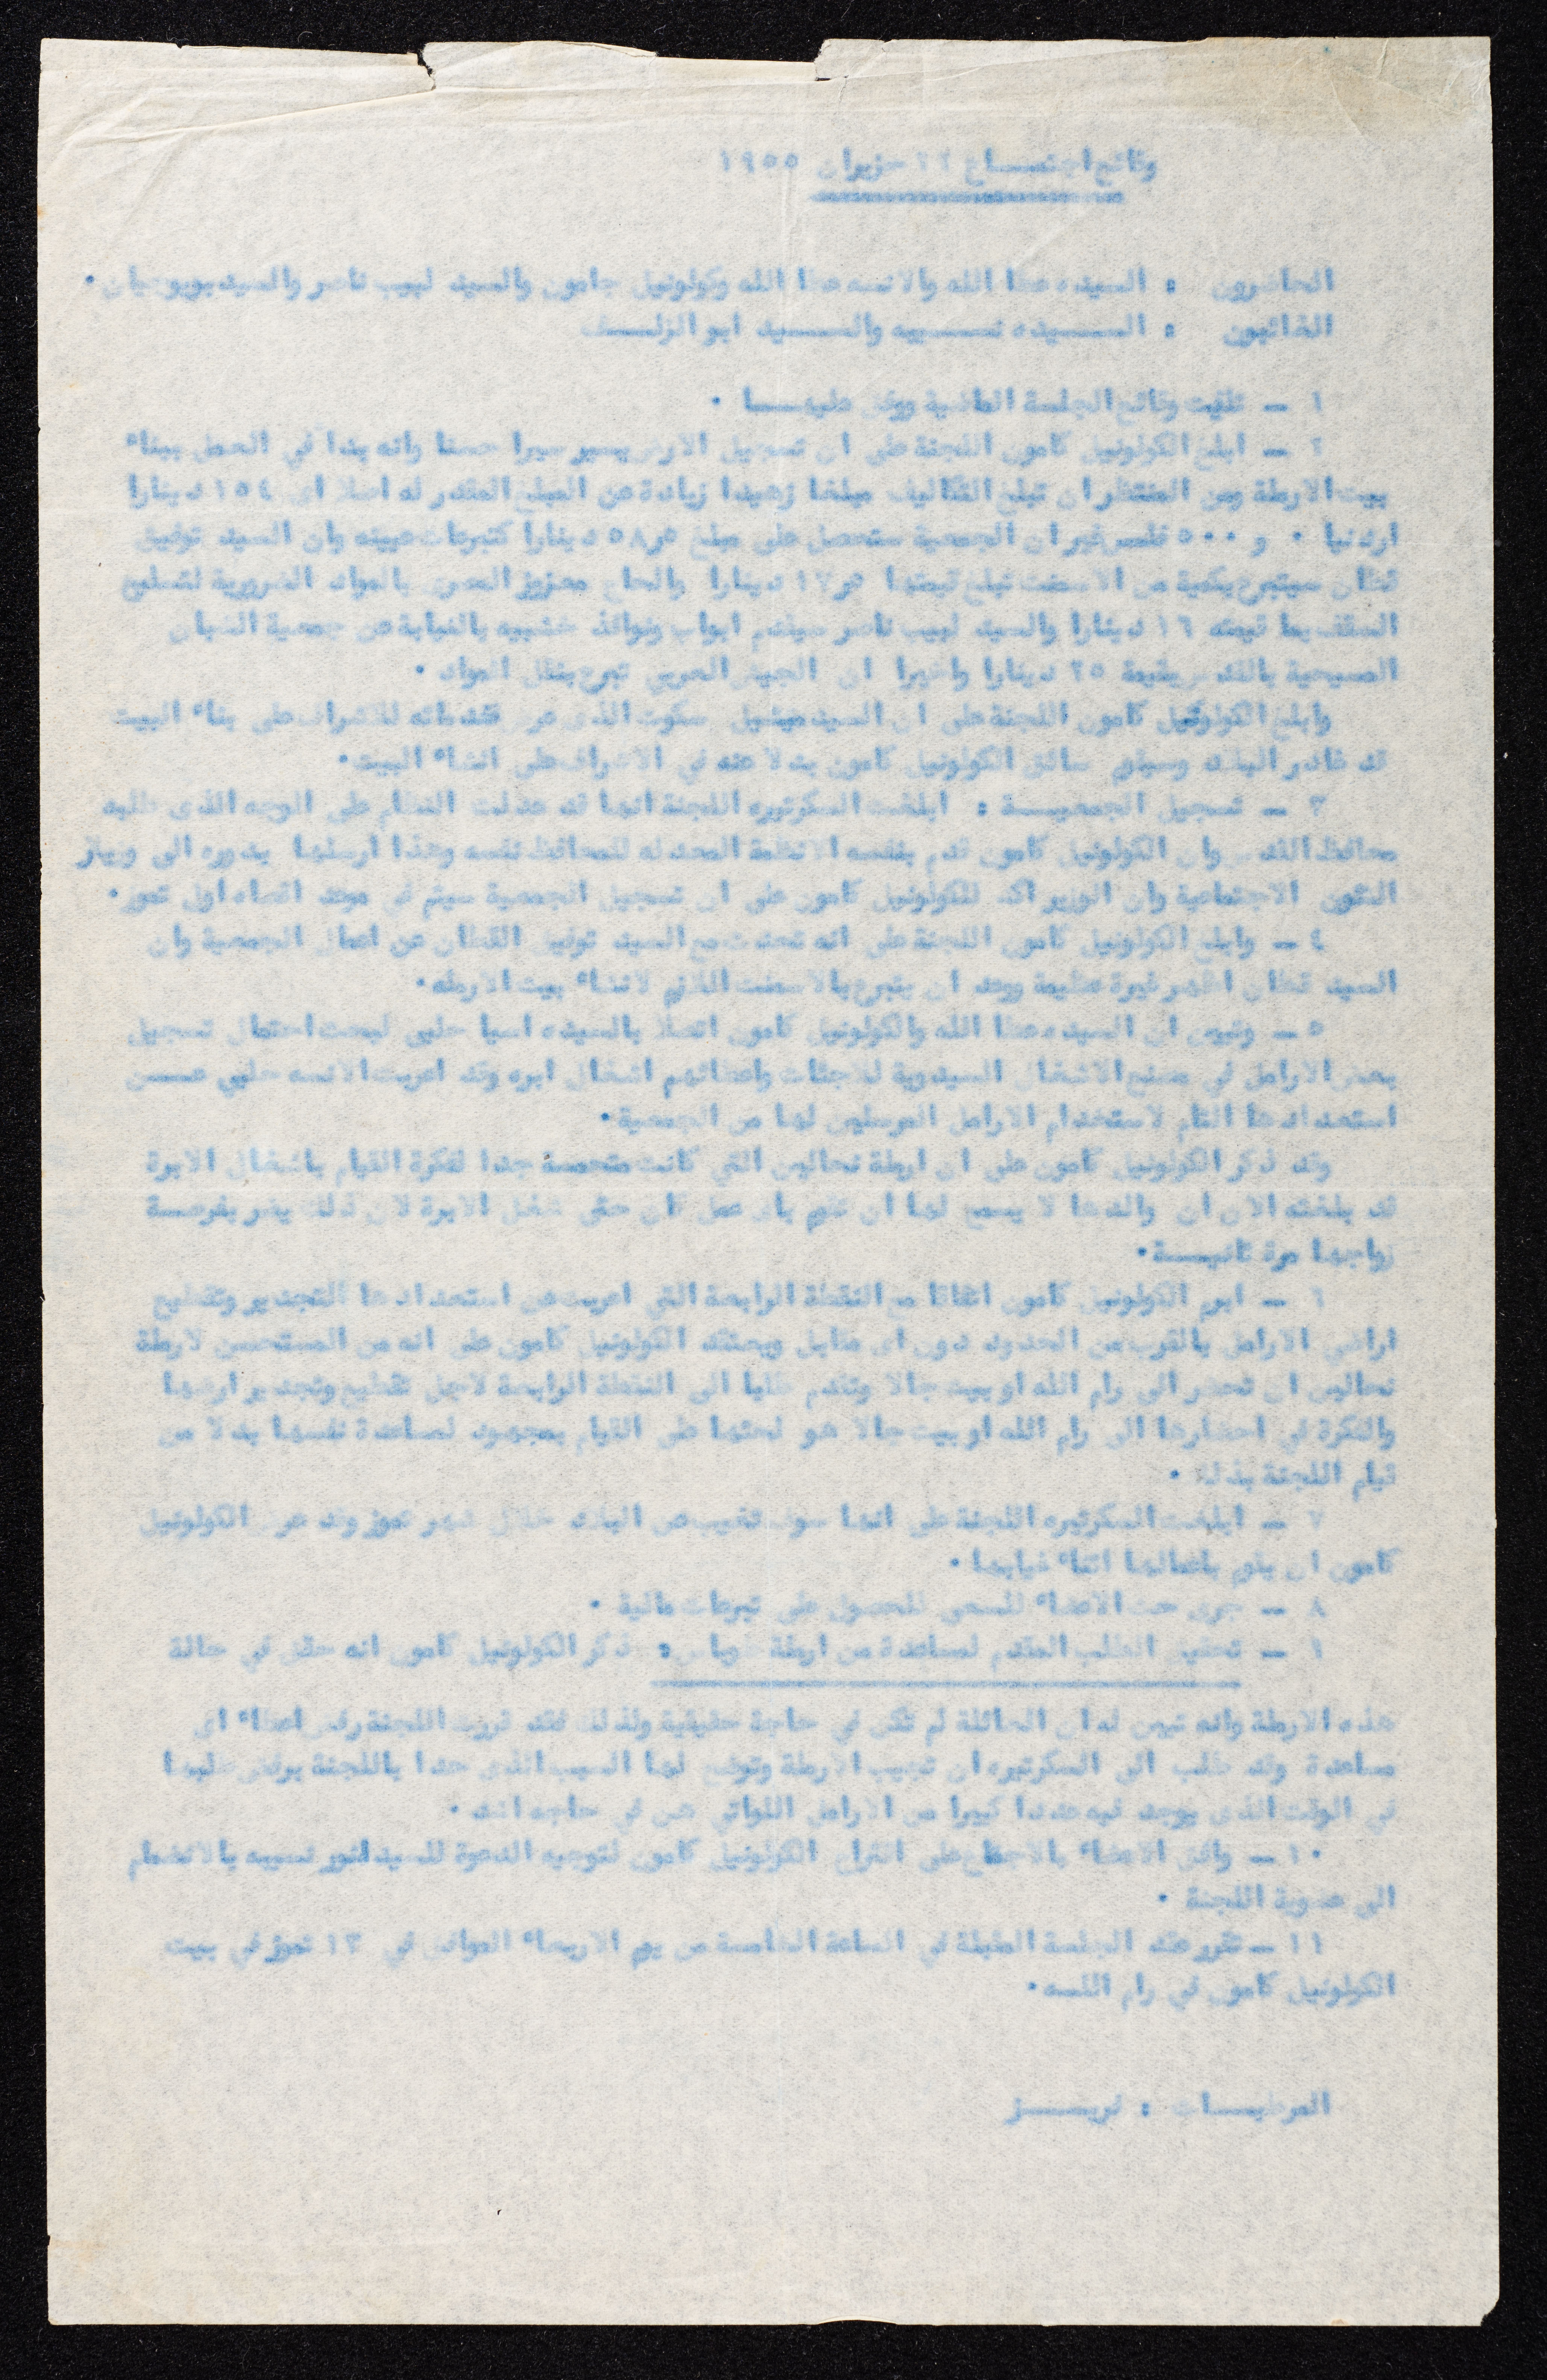 وقائع اجتمـــاع ٢٢ حزيران ١٩٥٥
الحاضرون : السيده عطا الله والانسه عطا الله وكولونيل جامون والسيد لبيب ناصر والسيد بوبوجيان ٠
الغائبون : الســـيده نســـيبه والســـيد ابو الزلـــف
١ — تليت وقائع الجلسة الماضية ووفق عليهـــا ٠
٢ — ابلغ الكولونيل كامون اللجنة على ان تسجيل الارض يسير سيرا حسنا وانه بدأ في العمل ببناء
بيت الارملة ومن المنتظر ان تبلغ التكاليف مبلغا زهيدا زيادة عن المبلغ المقدر له اصلا اى ١٥٤ دينارا
اردنيا ٠ و ٥٠٠ فلس غير ان الجمعية ستحصل على مبلغ ٥ر٥٨ دينارا كتبرعات عينيه وان السيد توفيق
قطان سيتبرع بكمية من الاسمنت تبلغ قيمتها ٥ر١٧ دينارا والحاج معزوز المصرى بالمواد الضرورية لتسليح
السقف بما قيمته ١٦ دينارا والسيد لبيب ناصر سيقدم ابواب ونوافذ خشبيه بالنيابة عن جمعية الشبان
المسيحية بالقدس بقيمة ٢٥ دينارا واخيرا ان الجيش العربي تبرع بنقل المواد ٠
وابلغ الكولونيل كامون اللجنة على ان السيد ميشيل سكوت الذى عرض خدماته للاشراف على بناء البيت
قد غادر البلاد وسيقوم سائق الكولونيل كامون بدلا عنه في الاشراف على انشاء البيت٠
٣ — تسجيل الجمعيـــة : ابلغت السكرتيره اللجنة انها قد عدلت النظام على الوجه الذى طلبه
محافظ القدس وان الكولونيل كامون قدم بنفسه الانظمة المعدله للمحافظ نفسه وهذا ارسلها بدوره الى وزير
الشئون الاجتماعية وان الوزير اكد للكولونيل كامون على ان تسجيل الجمعية سيتم في موعد اقصاه اول تموز٠
٤ — وابلغ الكولونيل كامون اللجنة على انه تحدث مع السيد توفيق القطان عن اعمال الجمعية وان
السيد قطان اظهر غيرة عظيمة ووعد ان يتبرع بالاسمنت اللازم لانشاء بيت الارمله٠
٥ — وتبين ان السيده عطا الله والكولونيل كامون اتصلا بالسيده اسيا حلبي لبحث احتمال تسجيل
بعض الارامل في مصنع الاشغال اليدوية للاجئات واعطائهم اشغال ابره وقد اعربت الانسه حلبي عـــن
استعدادها التام لاستخدام الارامل المرسلين لها من الجمعية٠
وقد ذكر الكولونيل كامون على ان ارملة نحالين التي كانت متحمسة جدا لفكرة القيام باشغال الابرة
قد بلغته الان ان والدها لا يسمح لها ان تقوم باى عمل كان حتى شغل الابرة لان ذلك يضر بفرصة
زواجها مرة ثانيـــة٠
٦ — الكولونيل كامون اتفاقا مع النقطة الرابعة التي اعربت عن استعدادها لتجدير وتقطيع
اراضي الارامل بالقرب من الحدود دون اى مقابل ويعتقد الكولونيل كامون على انه من المستحسن لارملة
نحالين ان تحضر الى رام الله او بيت جالا وتقدم طلبا الى النقطة الرابعة لاجل تقطيع وتجدير ارضها
والفكرة في احضارها الى رام الله او بيت جالا هو لحثها على القيام بمجهود لمساعدة نفسها بدلا من
قيام اللجنة بذلك ٠
٧ — ابلغت السكرتيره اللجنة على انها سوف تتغيب عن البلاد خلال شهر تموز وقد عرض الكولونيل
كامون ان يقوم باعمالها اثناء غيابها ٠
٨ — جرى حث الاعضاء للسعى للحصول على تبرعات مالية ٠
٩ — تحقيق الطلب المقدم لمساعدة من ارملة : ذكر الكولونيل كامون انه حقق في حالة
هذه الارملة وانه تبين له ان العائلة لم تكن في حاجة حقيقية ولذلك فقد قررت اللجنة رفض اعطاء اى
مساعدة وقد طلب الى السكرتيره ان تجيب الارملة وتوضح لها السبب الذى حدا باللجنة برفض طلبها
في الوقت الذى يوجد فيه عددا كبيرا من الارامل اللواتي هن في حاجه اشد ٠
١٠ — وافق الاعضاء بالاجماع على اقتراح الكولونيل كامون لتوجيه الدعوة للسيد انور نسيبه بالانضمام
الى عضوية اللجنة ٠
١١ — تقرر عقد الجلسة المقبلة في الساعة الخامسة من يوم الاربعاء الموافق في ١٣ تموز في بيت
الكولونيل كامون في رام اللـــه٠
المرطبـــات : فريـــز